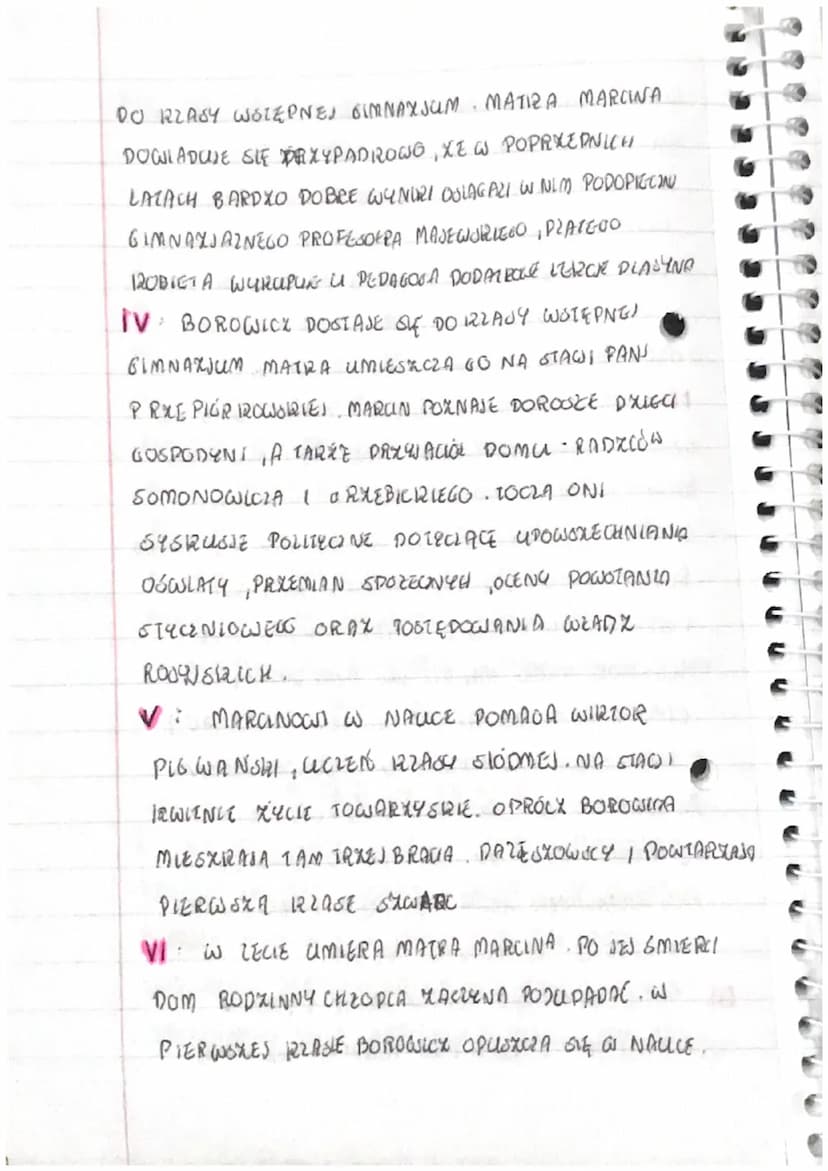 DO KLASY WSTĘPNEJ GIMNAZJUM. MATKA MARCINA
DOWIADUJE SIĘ PRZYPADKOWO, ŻE W POPRZEDNICH
LATACH BARDZO DOBRE WYNIKI OSIĄGALI W NIM PODOPIECZNI
GIMNAZJALNEGO PROFESORA MAJEWSKIEGO, DLATEGO
KOBIETA WYKUPUJE U PEDAGOGA DODATKOWE LEKCJE DLA SYNA
IV: BOROWICZ DOSTAJE SIĘ DO KLASY WSTĘPNEJ
GIMNAZJUM. MATKA UMIESZCZA GO NA STACJI PANI
PRZEPIÓRKOWSKIEJ. MARCIN POZNAJE DOROSŁE DZIECI
GOSPODYNI, A TAKŻE PRZYJACIÓŁ DOMU - RADZCÓW
SOMONOWICZA I GRZEBICKIEGO. TOCZĄ ONI
DYSKUSJE POLITYCZNE DOTYCZĄCE UPOWSZECHNIANIA
OŚWIATY, PRZEMIAN SPOŁECZNYCH, OCENY POWSTANIA
STYCZNIOWEGO ORAZ POSTĘPOWANIA WŁADZ
ROSYJSKICH.
V: MARCINOWI W NAUCE POMAGA WIKTOR
PIGWAŃSKI, UCZEŃ KLASY SIÓDMEJ. NA STACJI
KWITNIE ŻYCIE TOWARZYSKIE. OPRÓCZ BOROWICZA
MIESZKAJĄ TAM TRZEJ BRACIA DALĘSZOWSCY I POWTARZAJĄ
PIERWSZĄ KLASĘ SZWARC
VI: W LECIE UMIERA MATKA MARCINA. PO JEJ ŚMIERCI
DOM RODZINNY CHŁOPCA ZACZYNA PODUPADAĆ. W
PIERWSZEJ KLASIE BOROWICZ OPUSZCZA SIĘ W NAUCE.